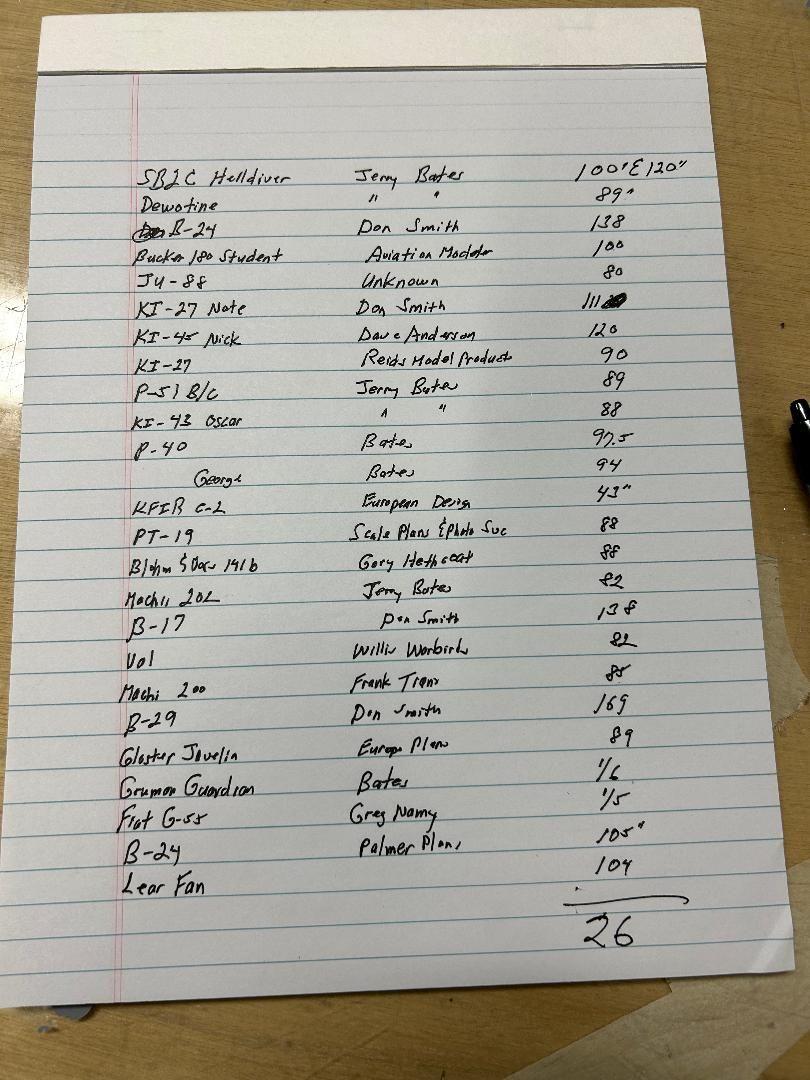 SB2C Helldiver Jerry Bates 100" & 120"
Dewotine " " 89"
B-24 Don Smith 138
Bucker 180 Student Aviation Modeler 100
JU-88 Unknown 80
KI-27 Nate Don Smith 111
KI-45 Nick Dave Anderson 120
KI-27 Reids Model Products 90
P-51 B/C Jerry Bates 89
KI-43 Oscar " " 88
P-40 Bates 97.5
George Bates 94
KFIR C-2 European Design 43"
PT-19 Scale Plans & Photo Svc 88
Blohm & Voss 141b Gary Hethcoat 88
Machii 202 Jerry Bates 82
B-17 Don Smith 138
Val Willis Warbirds 82
Machi 200 Frank 85
B-29 Don Smith 169
Gloster Javelin Europe Plans 89
Gruman Guardian Bates 1/6
Fiat G-55 Greg Namy 1/5
B-24 Palmer Plans 105"
Lear Fan 104
26